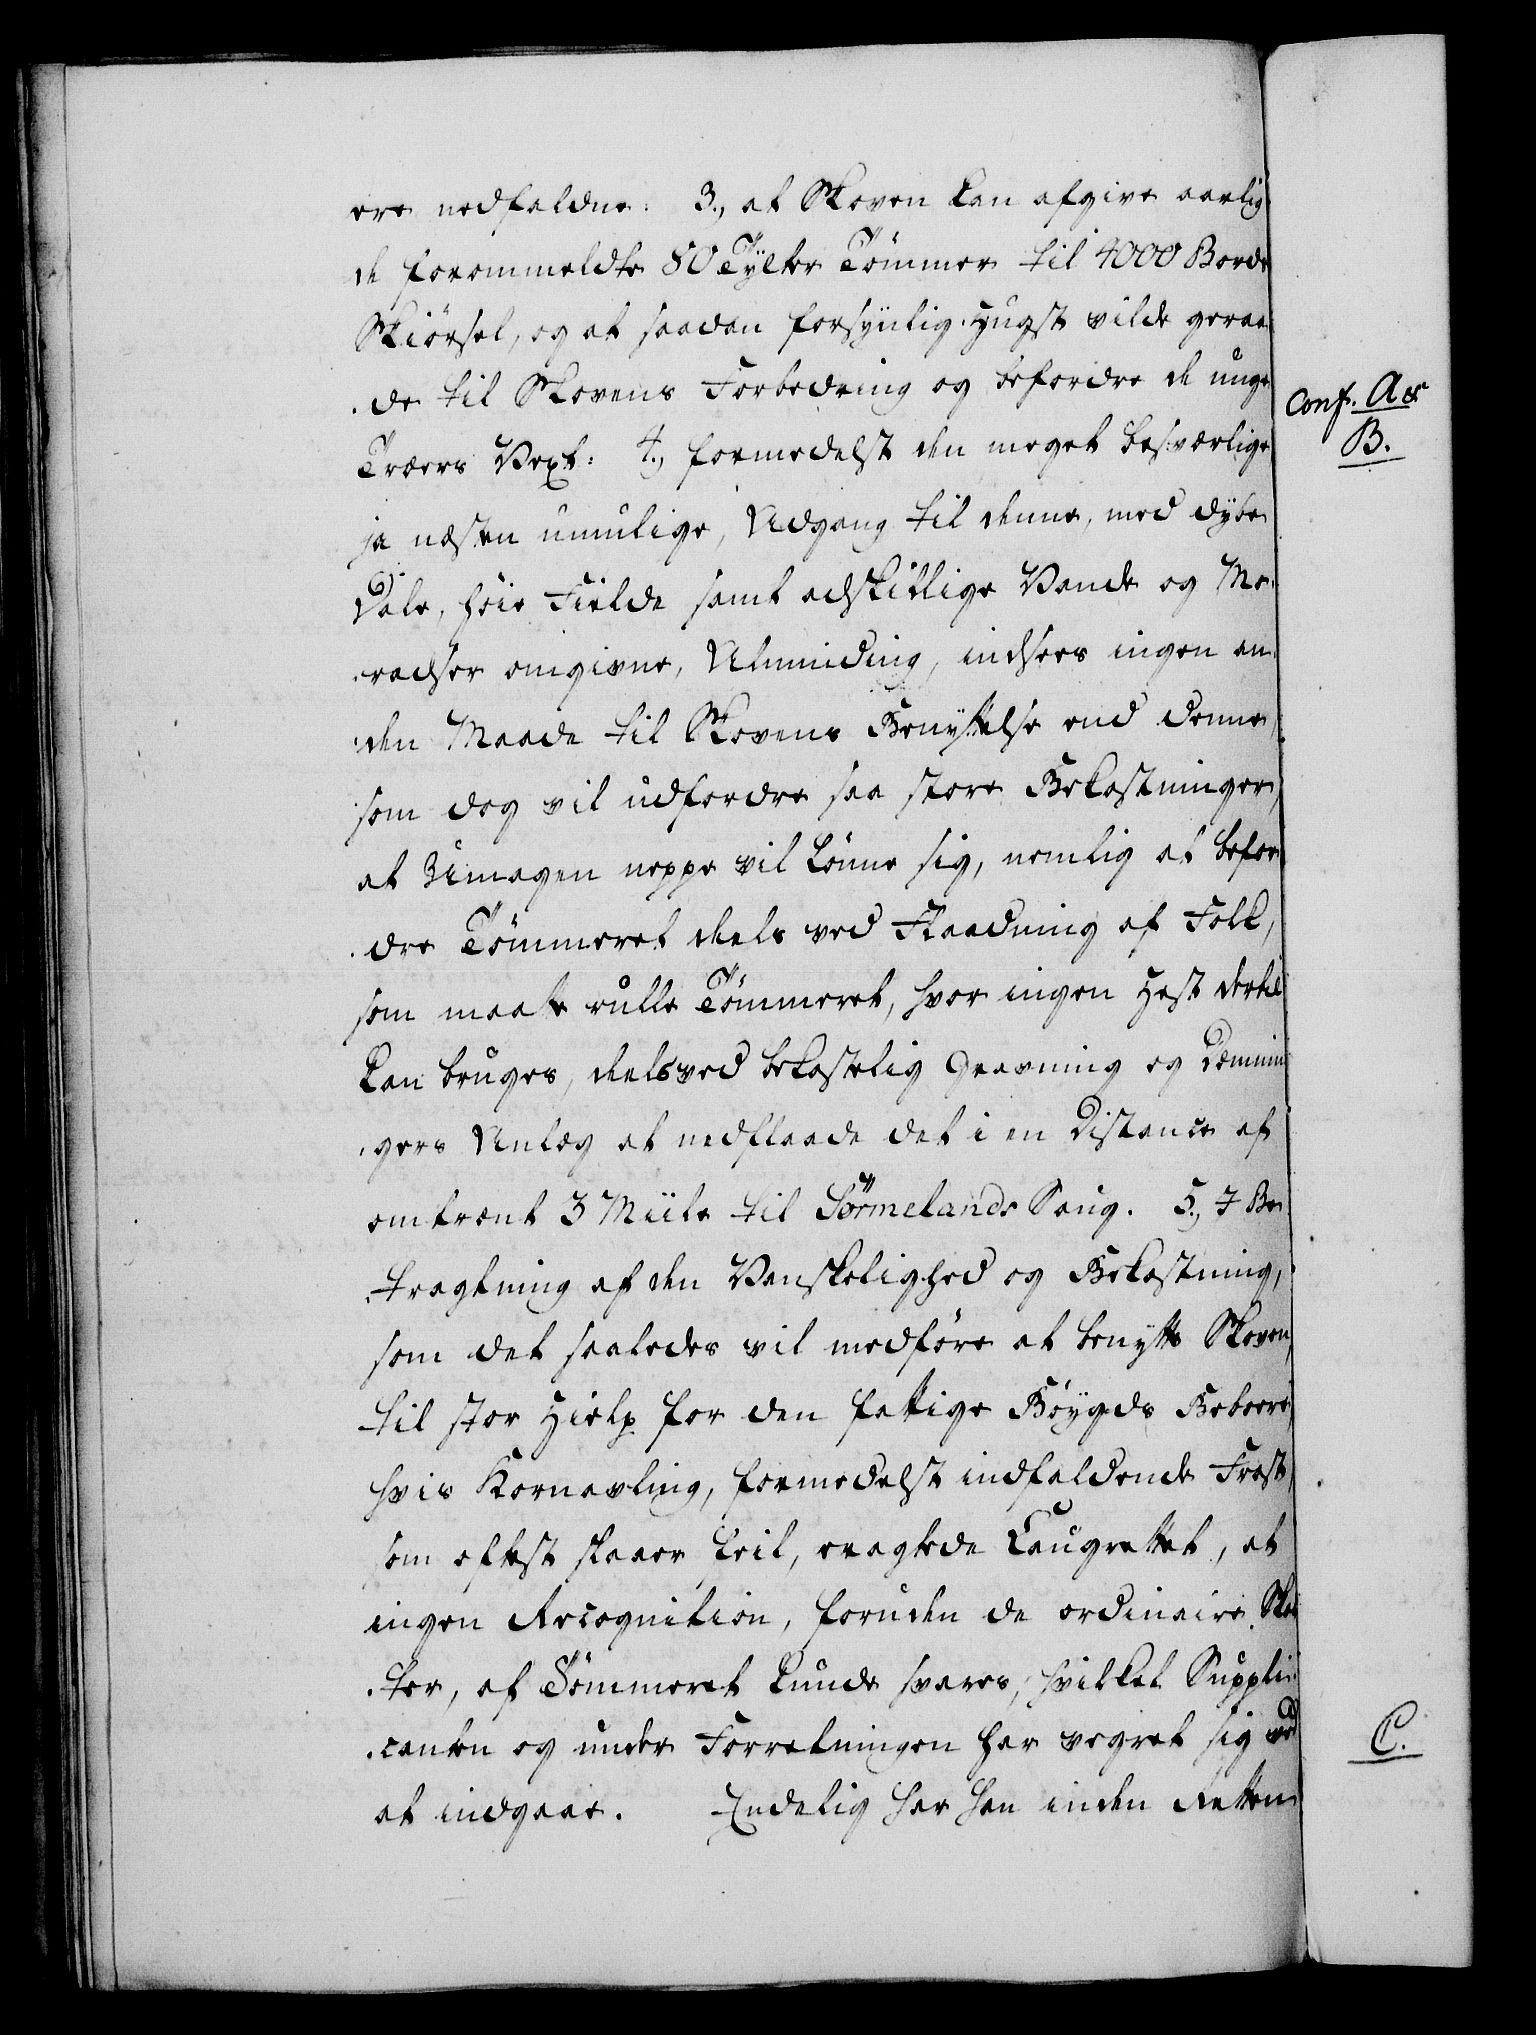 ere nedfaldne: 3., at Skoven kan afgive aarlig
de forommeldte 80 Tylter Tömmer til 4000 Borde
Skiörsel, og at saadan forsynlig Hugst vilde geraa
de til Skovens Forbedring og befordre de unge
Træers Vext: 4., formedelst den meget besværlige
ja næsten umulige, Udgang til denne, med dybe
Dale, höie Fielde samt adskillige Vande og Mo-
radser omgivne, Alminding, indsees ingen an-
den Maade til Skovens Benyttelse end denne,
som dog vil udfordre saa store Bekostninger,
at Umagen neppe vil lönne sig, nemlig at befor
dre Tömmeret deels ved Flaadning af Folk,
som maate rulle Tömmeret, hvor ingen Hest dertil
kan bruges, deels ved bekostelig Gravning og Dæmnin
gers Anlæg at nedflaade det i en Distance af
omtrent 3 Miile til Sörmelands Saug. 5., I Be
tragtning af den Vanskelighed og Bekostning,
som det saaledes vil medföre at benytte Skoven,
til stor Hielp for den fattige Böygds Beboere,
hvis Kornavling, formedelst indfaldende Frost,
som oftest slaaer feil, eragtede Laugrettet, at
ingen Recognition, foruden de ordinaire Skat
ter, af Tömmeret kunde svares, hvilket Suppli-
canten og under Forretningen har vegret sig ved
at indgaae. Endelig har han inden Retten
Conf. A &
B.
C.